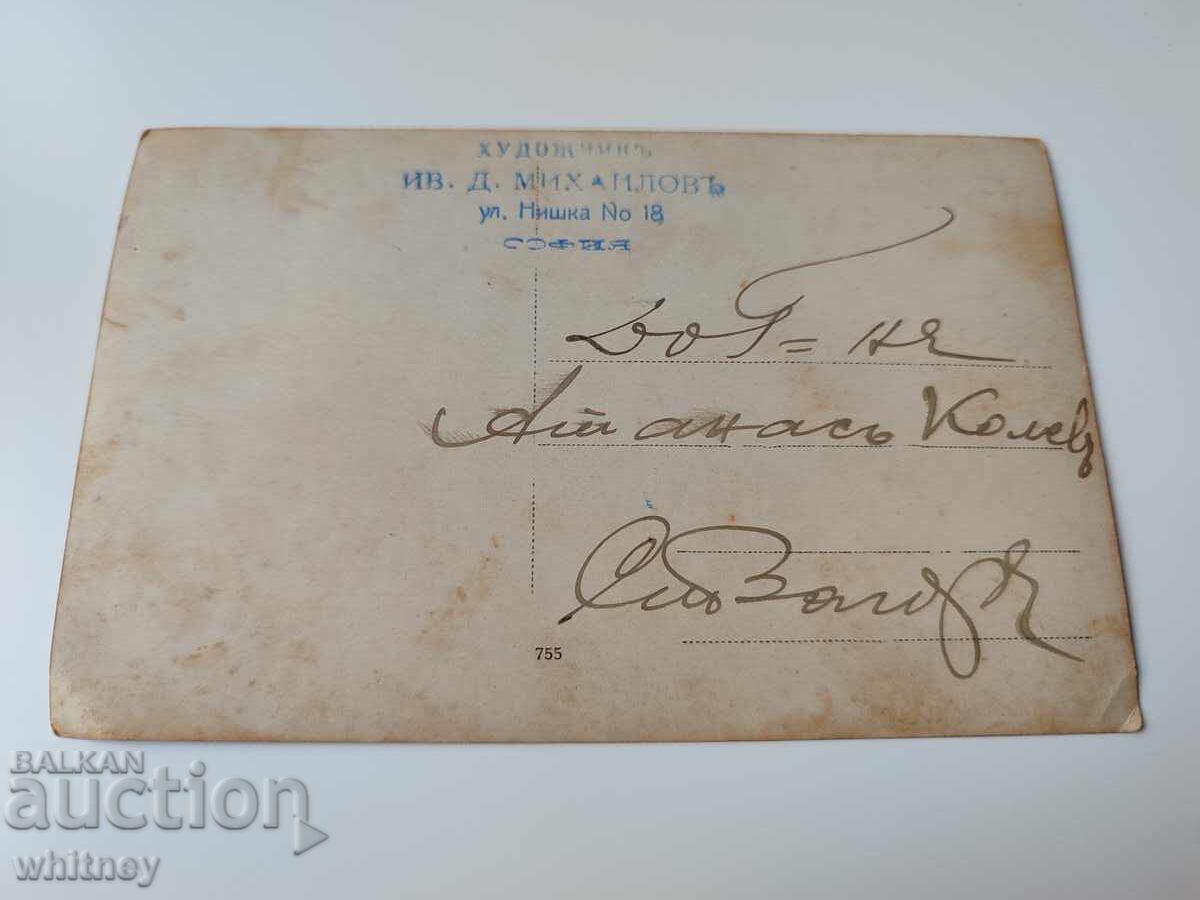 ХУДОЖНИКЪ
ИВ. Д. МИХАИЛОВЪ
ул. Нишка No 18
СОФИЯ
Атанасъ Колевъ
755
BALKAN
auction
whitney